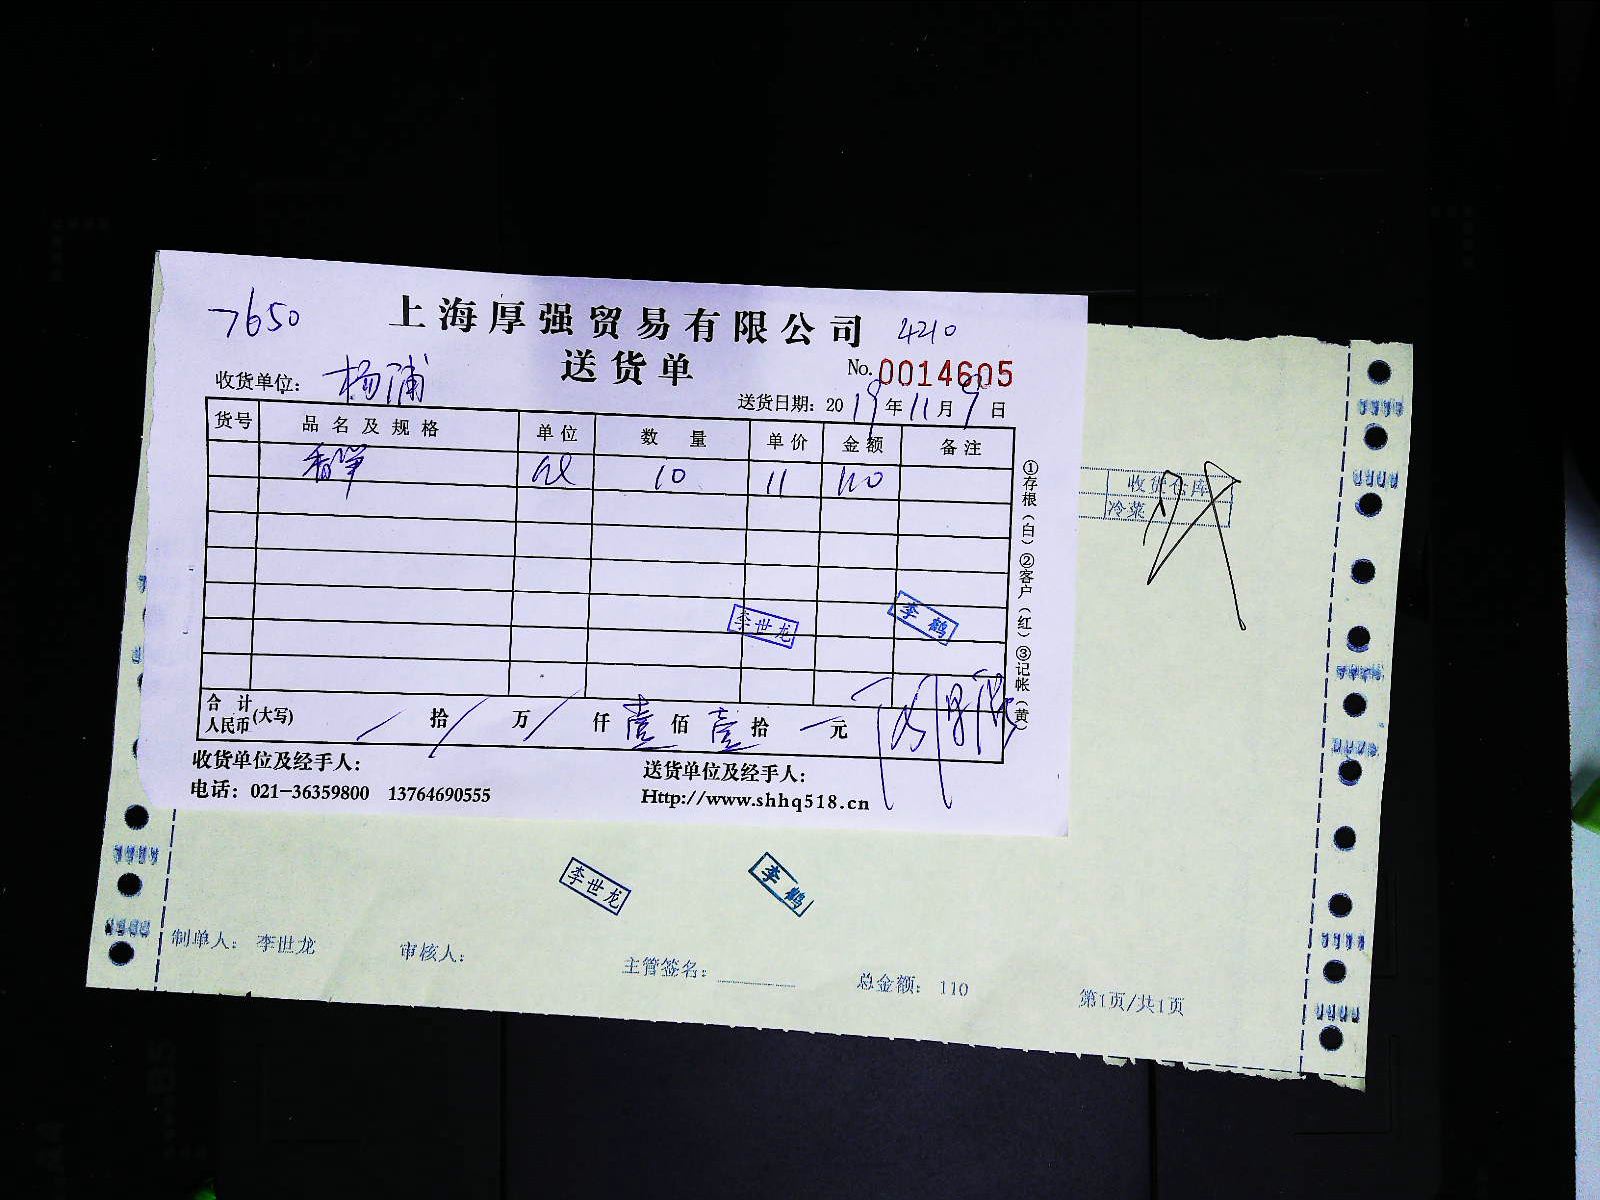 7650 上海厚强贸易有限公司 4210
送货单 No. 0014605
收货单位: 杨浦
送货日期: 2019年11月9日
货号 品名及规格 单位 数量 单价 金额 备注
香笋 10 11 110
李世龙 李鹤
合计人民币(大写) 拾 万 仟 壹佰 壹拾 元
①存根(白)②客户(红)③记帐(黄)
收货单位及经手人: 送货单位及经手人:
电话: 021-36359800 13764690555 Http://www.shhq518.cn
收货仓库
冷菜
李世龙 李鹤
制单人: 李世龙 审核人: 主管签名: 总金额: 110 第1页/共1页